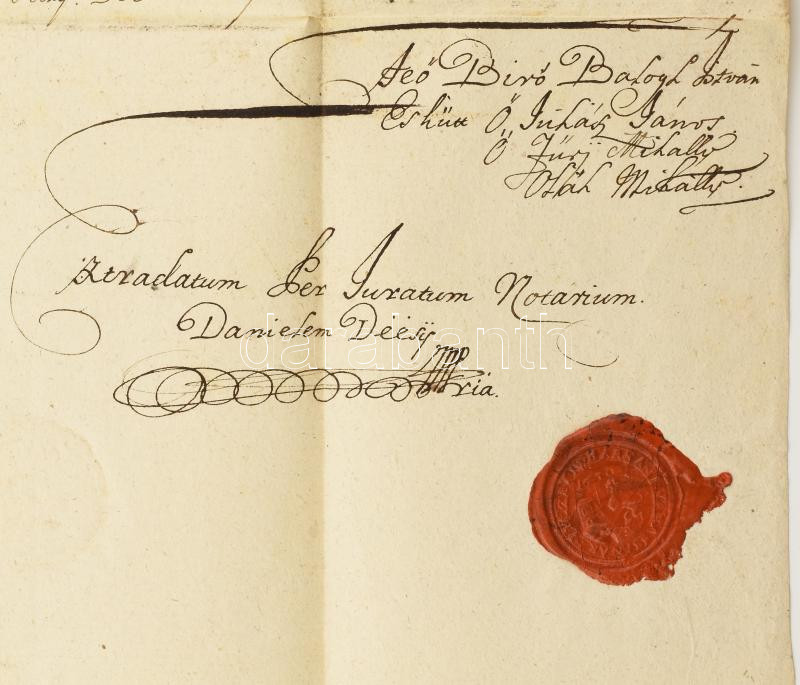 Feő Biró Balogh István
Eskütt Ő Juhász János
Ő Jürj Mihally
Oláh Mihally.
Extradatum Per Juratum Notarium.
Danielem Déésÿ
mp
ria.
darabanth